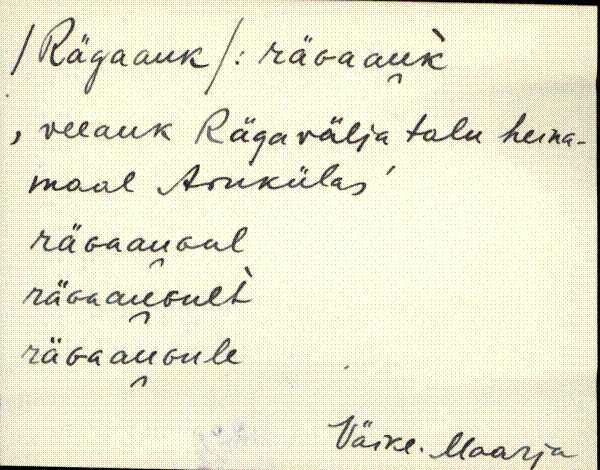 /Rägaauk/: räɢaau̯k̀
, veeauk Rägavälja talu heina-
maal Arukülas'
räɢaau̯ɢul
räɢaau̯ɢult̀
räɢaau̯ɢule
Väike-Maarja